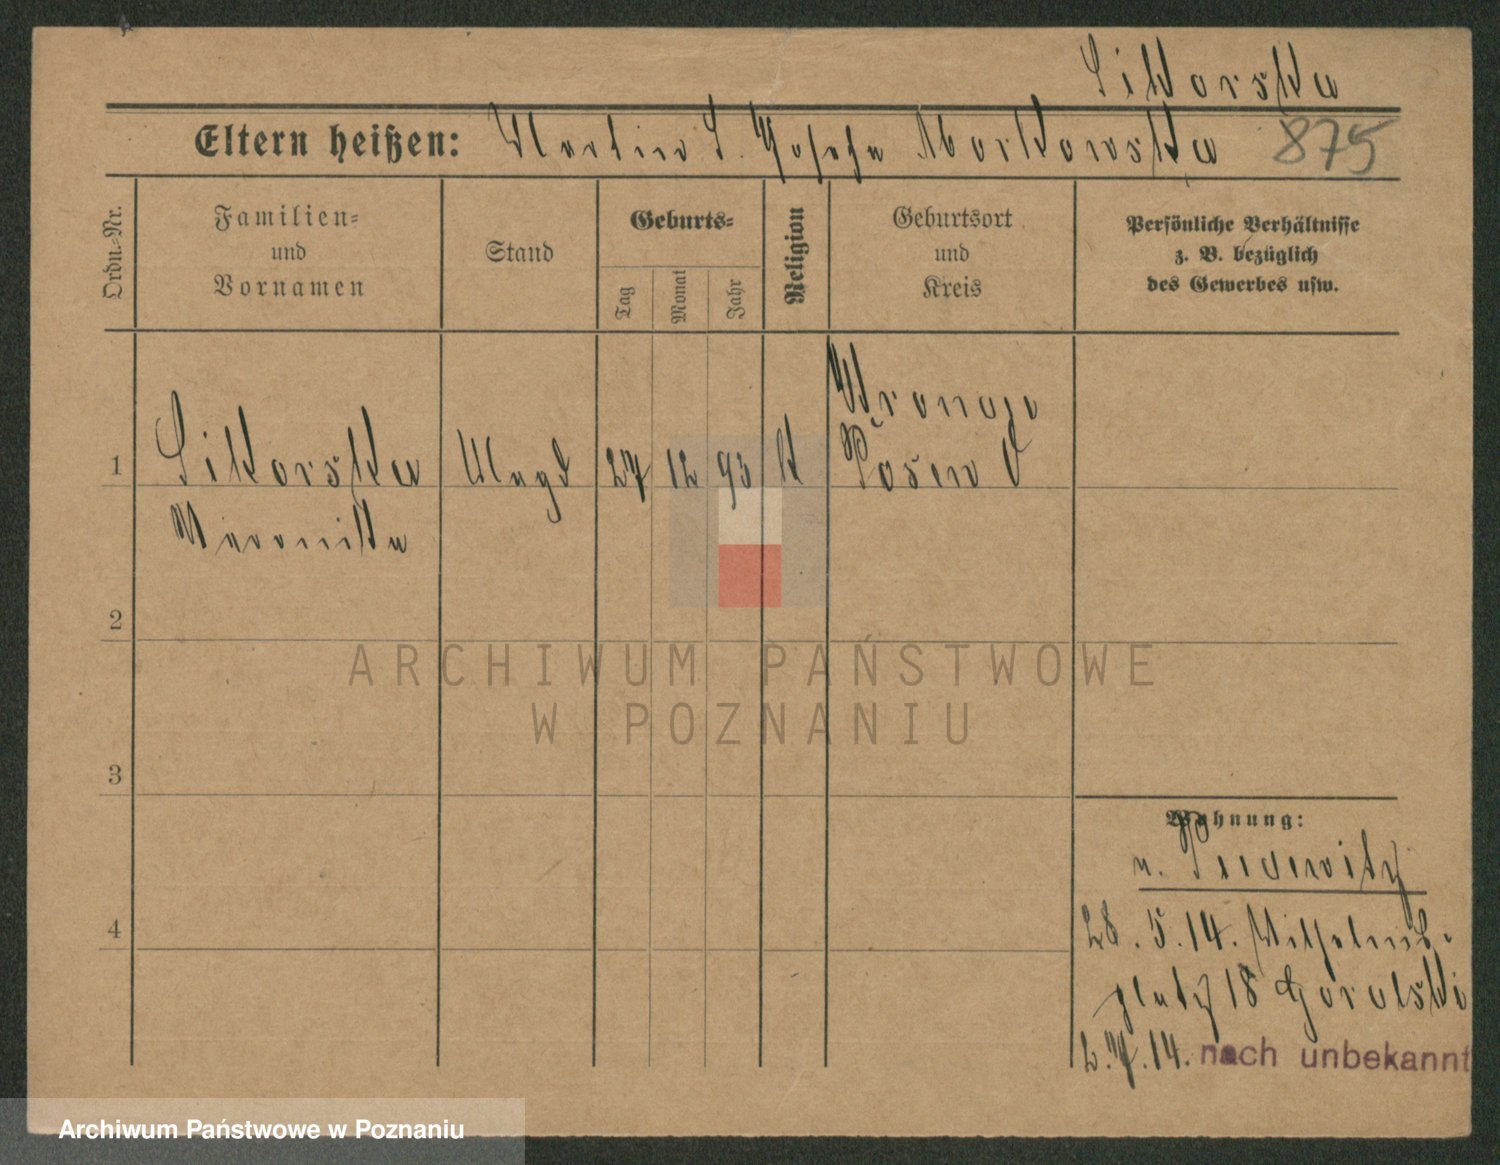 Sikorska
Eltern heißen: Martin S. Josefa Markowska 875
Ordn.-Nr.
Familien-
und
Vornamen
Stand
Geburts-
Tag
Monat
Jahr
Religion
Geburtsort
und
Kreis
Persönliche Verhältnisse
z. B. bezüglich
des Gewerbes usw.
Wronow
1 Sikorska Magd 27 12 93 K Posen O
Weronika
2
3
4
Wohnung:
v. Pudewitz
28. 5. 14. Wilhelms-
platz 18 Goralski
2. 7. 14. nach unbekannt
ARCHIWUM PAŃSTWOWE
W POZNANIU
Archiwum Państwowe w Poznaniu